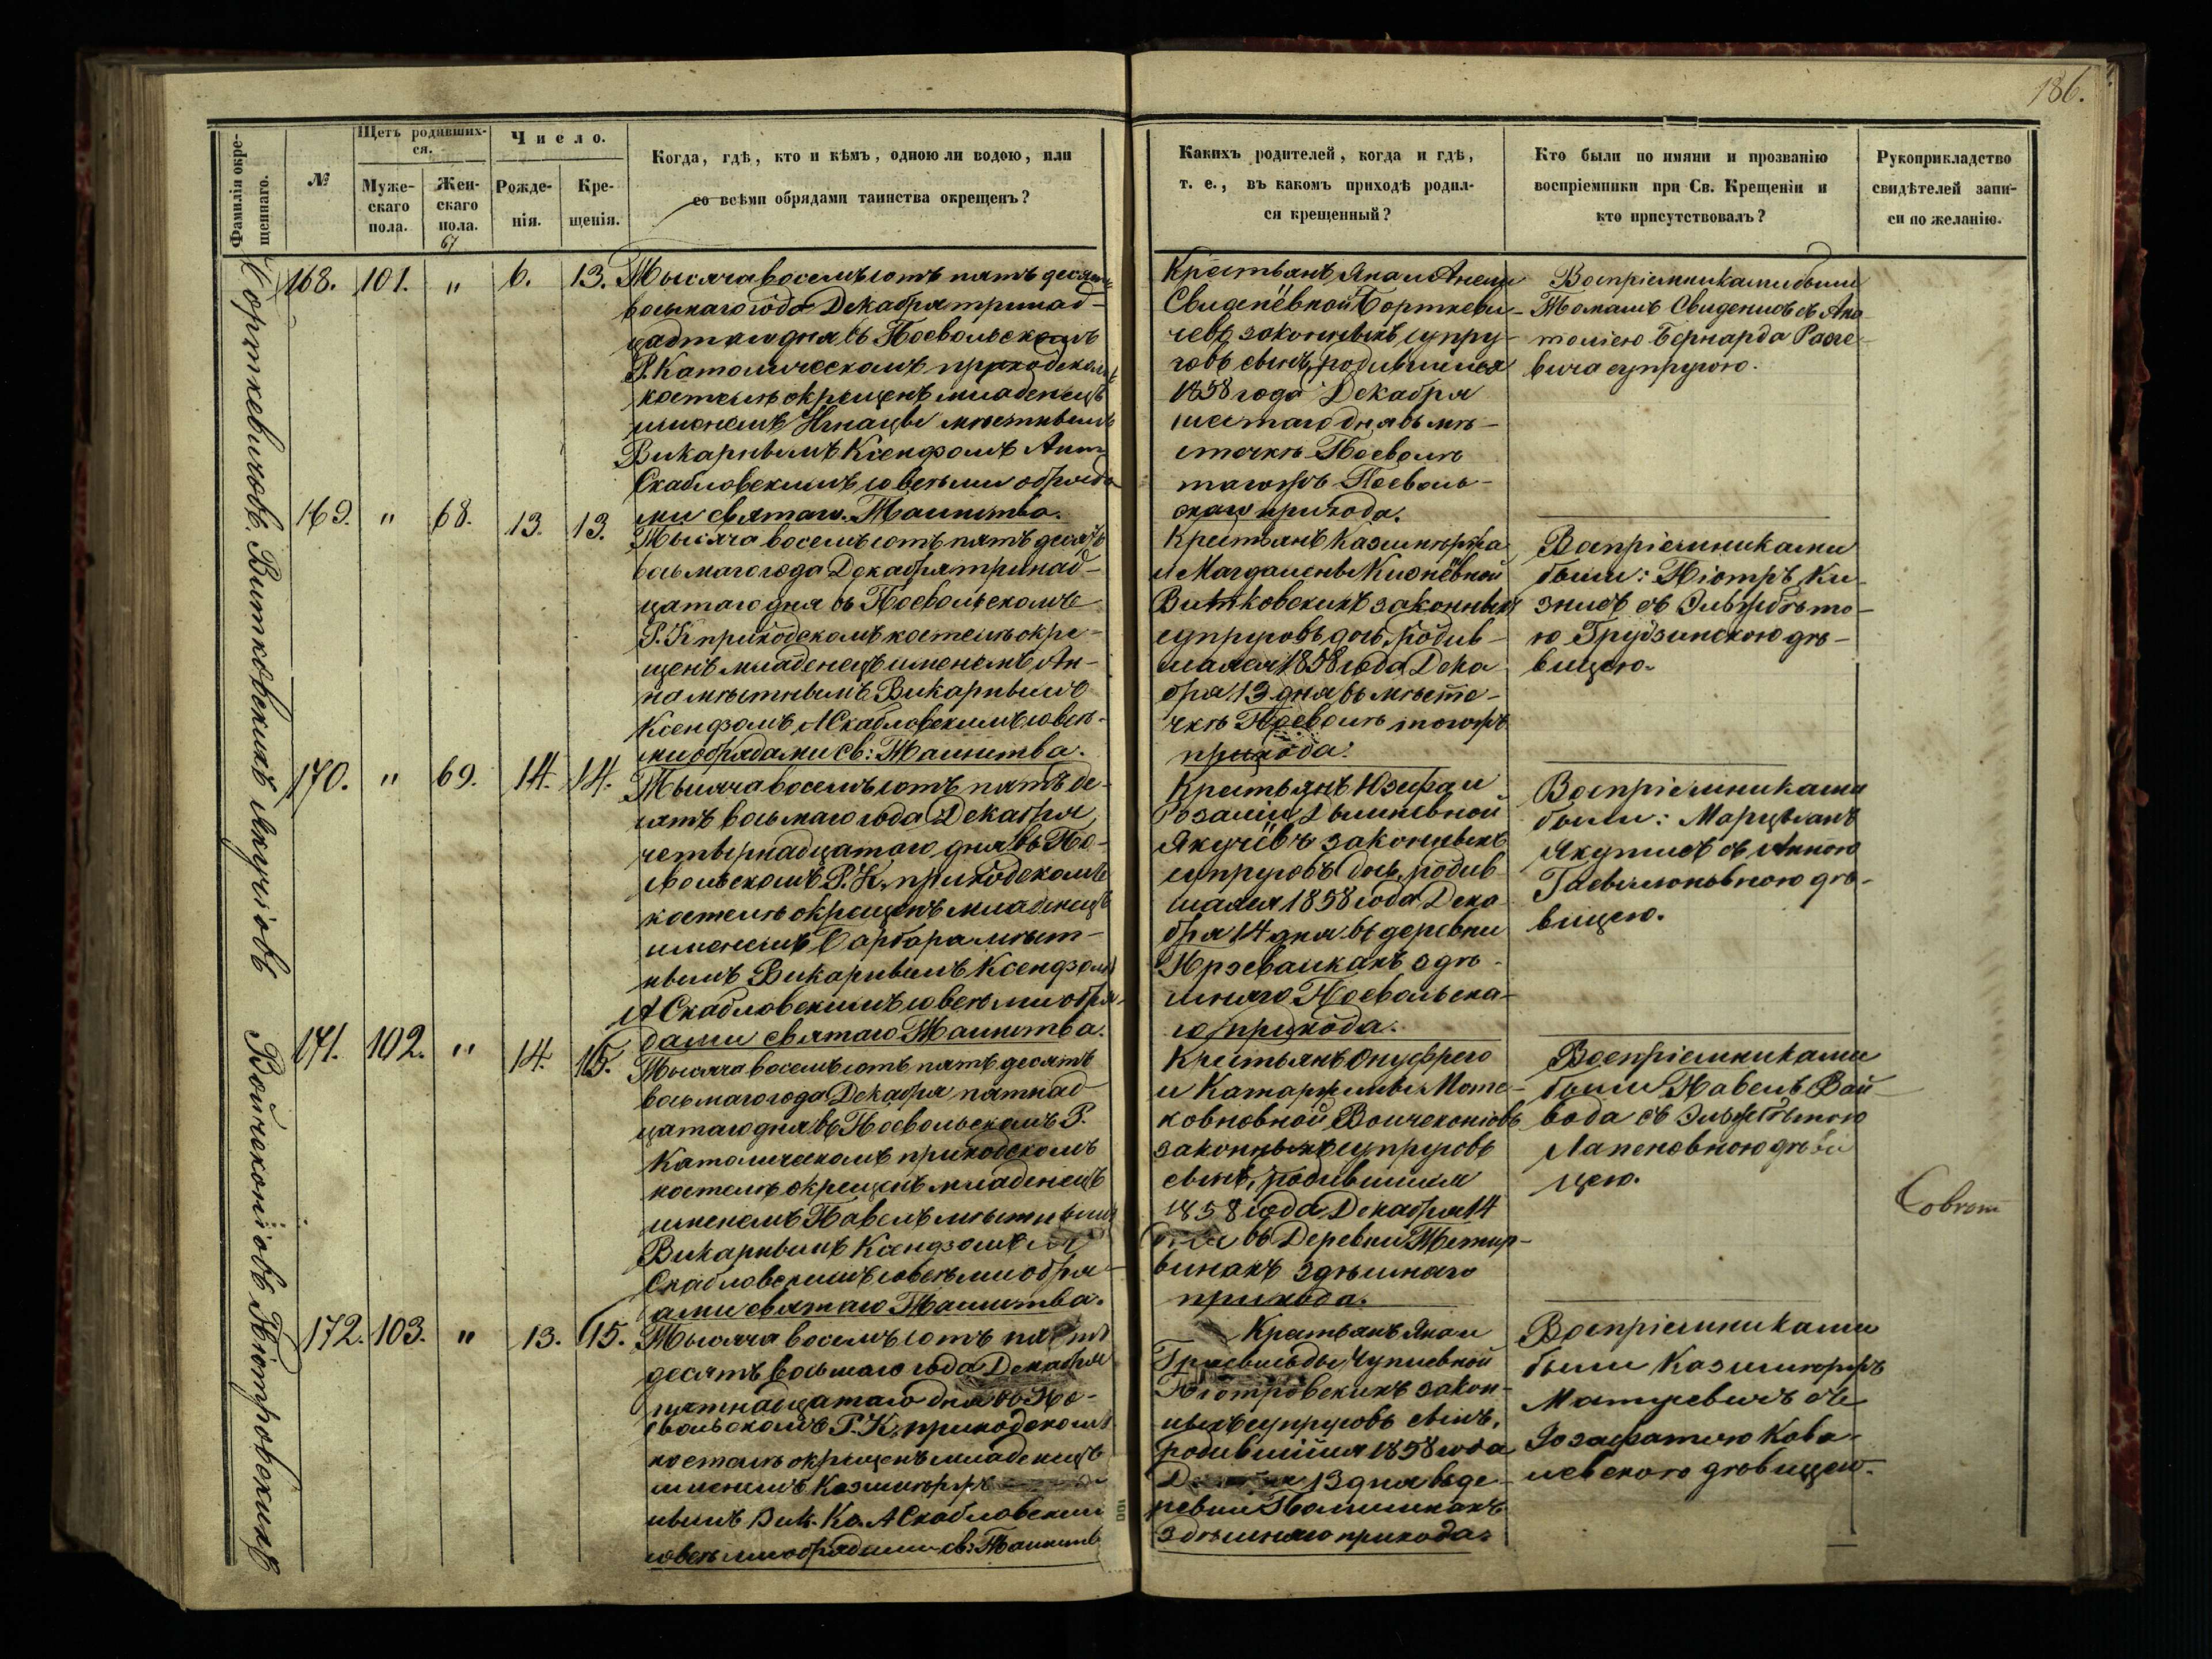 186.
Фамилія окрещеннаго.
№
Щетъ родивших-
ся.
Муже-
скаго
пола.
Жен-
скаго
пола.
67
Число.
Рожде-
нія.
Кре-
щенія.
Когда, гдѣ, кто и кѣмъ, одною ли водою, или
со всѣми обрядами таинства окрещенъ?
Какихъ родителей, когда и гдѣ,
т. е., въ какомъ приходѣ родил-
ся крещенный?
Кто были по имяни и прозванію
воспріемники при Св. Крещеніи и
кто присутствовалъ?
Рукоприкладство
свидѣтелей запи-
си по желанію.
Борткевичовъ.
168. 101. " 6. 13.
Тысяча восемьсотъ пятьдесятъ
восьмаго года Декабря тринад-
цатаго дня въ Посвольскомъ
Р. Католическомъ приходскомъ
костелѣ окрещенъ младенецъ
именемъ Игнацы мѣстнымъ
Викарнымъ Ксендзомъ Ант
Скабловскимъ со всѣми обряда
ми святаго Таинства.
Крестьянъ Яна и Анели
Свиденёвной Борткеви-
чевъ законныхъ супру-
говъ сынъ, родившийся
1858 года Декабря
шестаго дня въ мѣ-
стечкѣ Посволѣ
тогожъ Посволь-
скаго прихода.
Воспріемниками были
Томашъ Свиденисъ съ Ана
толіею Бернарда
вича супругою.
Витковскихъ
169. " 68. 13. 13.
Тысяча восемьсотъ пятьдесятъ
восьмаго года Декабря тринад-
цатаго дня въ Посвольскомъ
Р. К приходскомъ костелѣ окре-
щенъ младенецъ именемъ Ан-
на мѣстнымъ Викарнымъ
Ксендзомъ А Скабловскимъ со всѣ-
ми обрядами св: Таинства.
Крестьянъ Казимѣржа
и Магдалены Кизнёвной
Витковскихъ законныхъ
супруговъ дочь, родив-
шаяся 1858 года Дека
бря 13 дня въ мѣсте-
чкѣ Посволѣ тогожъ
прихода.
Воспріемниками
были: Піотръ Ки-
знисъ съ Эльжбѣто-
ю Грудзинскою дѣ-
вицею.
Якучіовъ
170. " 69. 14. 14.
Тысяча восемьсотъ пятьде-
сятъ восьмаго года Декабря
четырнадцатаго дня въ По-
свольскомъ Р. К. приходскомъ
костелѣ окрещенъ младенецъ
именемъ Барбара мѣст-
нымъ Викарнымъ Ксендзомъ
А Скабловскимъ со всѣми обря-
дами святаго Таинства.
Крестьянъ Юзефа и
Розаліи
Якучёвъ законныхъ
супруговъ дочь, родив
шаяся 1858 года Дека
бря 14 дня въ деревни
здѣ-
шняго Посвольска-
го прихода.
Воспріемниками
были: Марцѣянъ
съ Анною
дѣ-
вицею.
Войчеконіовъ
171. 102. " 14. 15.
Тысяча восемьсотъ пятьдесятъ
восьмаго года Декабря пятнад
цатаго дня въ Посвольскомъ Р.
Католическомъ приходскомъ
костелѣ окрещенъ младенецъ
именемъ Павелъ мѣстнымъ
Викарнымъ Ксендзомъ А
Скабловскимъ со всѣми обря-
дами святаго Таинства.
Крестьянъ Онуфрего
и Катаржины Мате-
ковновной Войчеконіовъ
законныхъ супруговъ
сынъ, родившийся
1858 года Декабря 14
дня въ Деревни
здѣшняго
прихода.
Воспріемниками
были Павелъ Вай-
вода съ Эльжбѣтою
Лапеновною дѣви
цею.
Піотровскихъ
172. 103. " 13. 15.
Тысяча восемьсотъ пять
десятъ восьмаго года Декабря
пятнадцатаго дня въ По-
свольскомъ Р. К. приходскомъ
костелѣ окрещенъ младенецъ
именемъ Казимѣржъ
нымъ Вик. Кс. А Скабловским
со всѣми обрядами св: Таинств
Крестьянъ Яна и
Піотровскихъ закон-
ныхъ супруговъ сынъ,
родившійся 1858 года
13 дня въ де-
ревни
здѣшняго прихода.
Воспріемниками
были Казимѣржъ
Матусевичъ съ
Іозафатою Кова-
левскою дѣвицею.